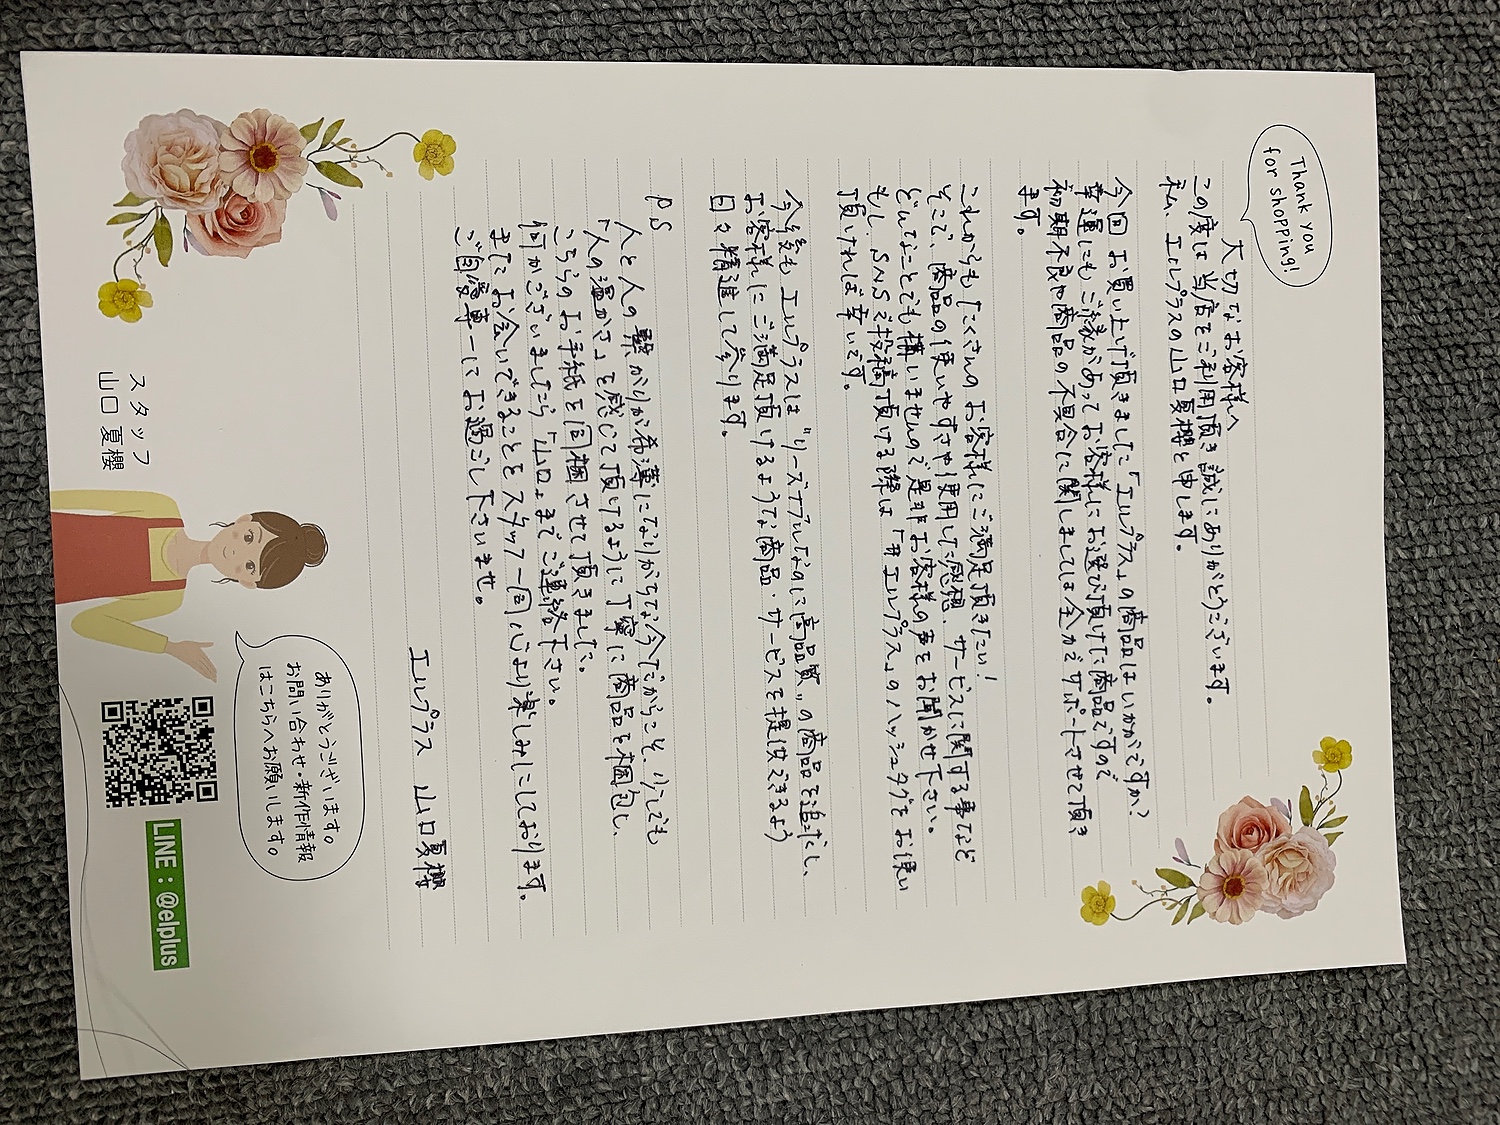 Thank you
for shopping!
大切なお客様へ
この度は当店をご利用頂き誠にありがとうございます。
私、エルプラスの山口夏櫻と申します。
今回 お買い上げ頂きました「エルプラス」の商品はいかがですか?
幸運にもご縁があってお客様にお選び頂けた商品ですので
初期不良や商品の不具合に関しましては全力でサポートさせて頂き
ます。
これからもたくさんのお客様にご満足頂きたい!
そこで、商品の使いやすさや使用した感想、サービスに関する事など
どんなことでも構いませんので是非お客様の声をお聞かせ下さい。
もし、SNSで投稿頂ける際は「#エルプラス」のハッシュタグをお使い
頂ければ幸いです。
今後もエルプラスは"リーズナブルなのに高品質"の商品を追求し、
お客様にご満足頂けるような商品・サービスを提供できるよう
日々精進して参ります。
P.S
人と人の繋がりが希薄になりがちな今だからこそ、少しでも
「人の温かさ」を感じて頂けるように丁寧に商品を梱包し、
こちらのお手紙を同梱させて頂きました。
何かございましたら「山口」までご連絡下さい。
またお会いできることをスタッフ一同心より楽しみにしております。
ご自愛専一にお過ごし下さいませ。
エルプラス 山口夏櫻
スタッフ
山口 夏櫻
ありがとうございます。
お問い合わせ・新作情報
はこちらへお願いします。
LINE:@elplus